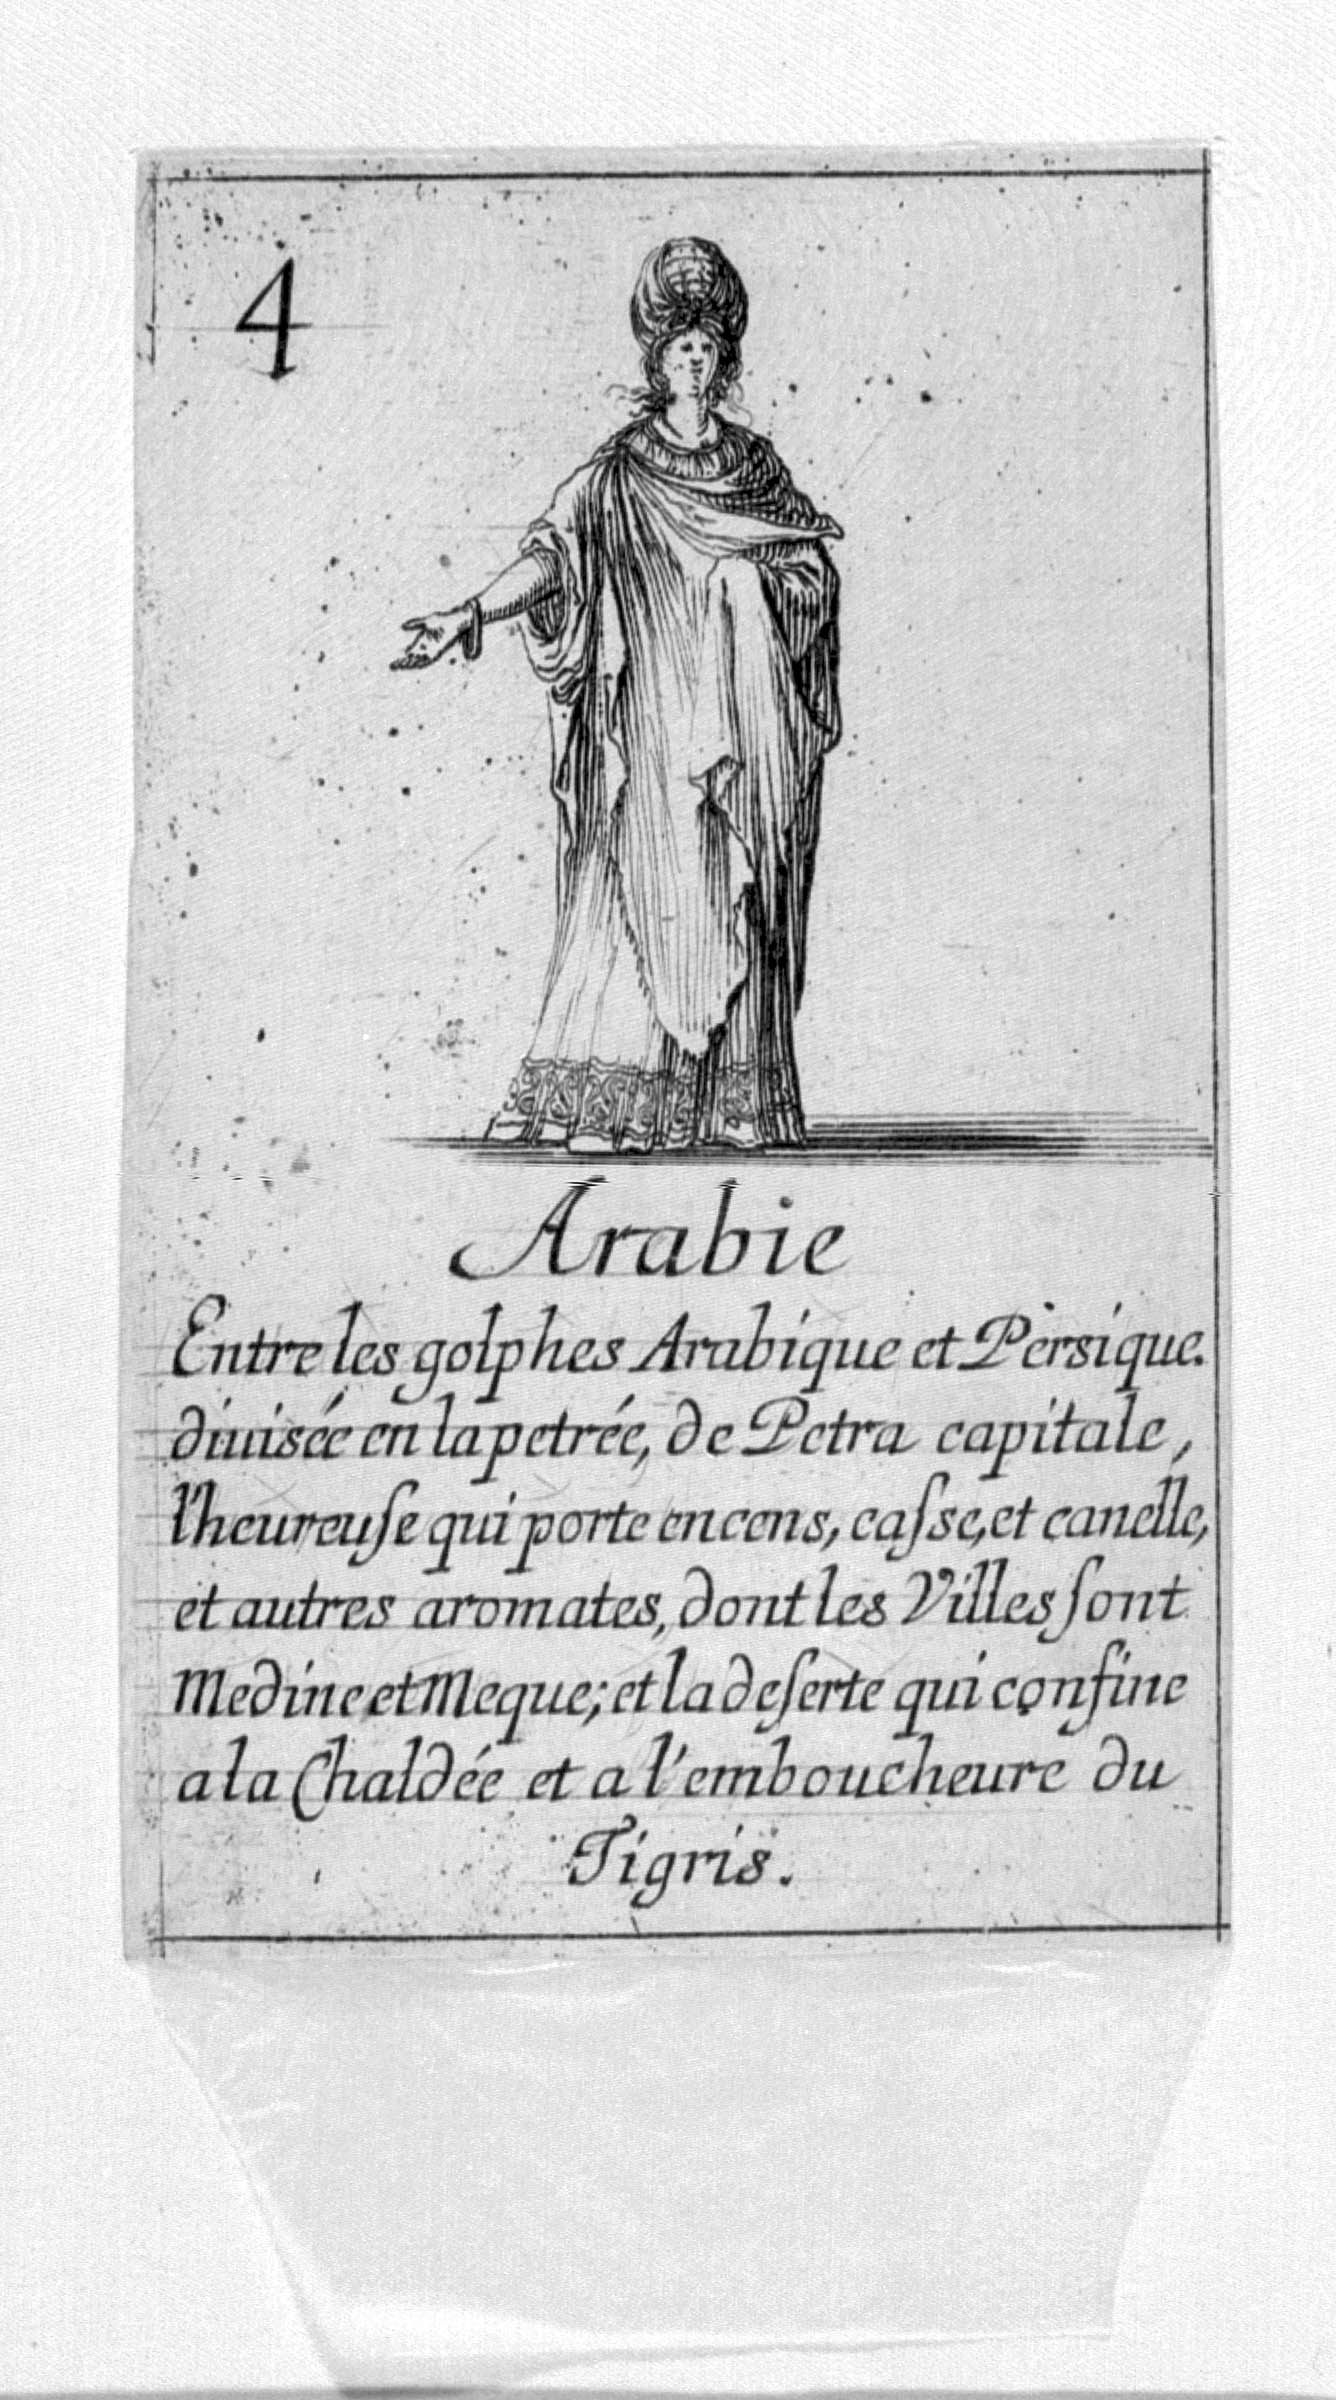 4
Arabie
Entre les golphes Arabique et Persique.
diuisée en la petrée, de Petra capitale,
l'heureuſe qui porte encens, caſse, et canelle,
et autres aromates, dont les Villes ſont
Medine et Meque; et la deſerte qui confine
a la Chaldée et a l'emboucheure du
Tigris.